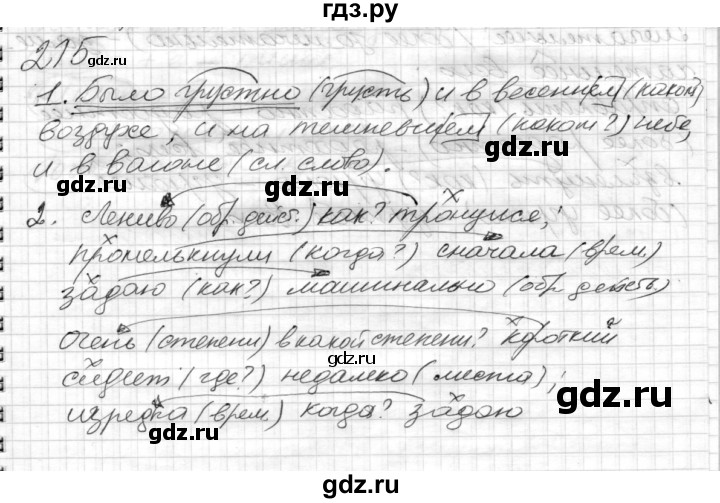 гдз.ру
215
1. Было грустно (грусть) и в весеннем (каком)
воздухе, и на темневшем (каком?) небе,
и в вагоне (сл. слово).
2. Лениво (обр. дейст.) как? тронулся;
промелькнули (когда?) сначала (врем.)
задаю (как?) машинально (обр. действ.)
очень (степени) в какой степени? короткий
сидит (где?) недалеко (места);
изредка (врем.) когда? задаю
gdz.ru
gdz.ru
gdz.ru
gdz.ru
gdz.ru
gdz.ru
gdz.ru
gdz.ru
gdz.ru
gdz.ru
gdz.ru
gdz.ru